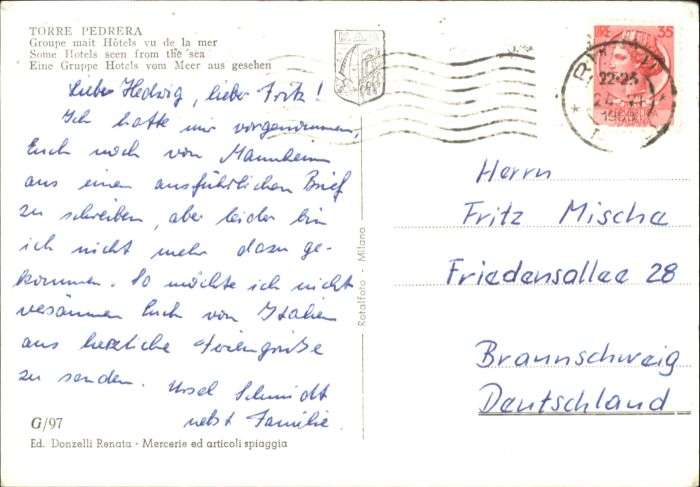 TORRE PEDRERA
Groupe mait Hôtels vu de la mer
Some Hotels seen from the sea
Eine Gruppe Hotels vom Meer aus gesehen
Liebe Hedwig, lieber Fritz!
Ich hatte mir vorgenommen,
Euch noch von Mannheim
aus einen ausführlichen Brief
zu schreiben, aber leider bin
ich nicht mehr dazu ge-
kommen. So möchte ich nicht
versäumen Euch von Italien
aus herzliche Feriengrüße
zu senden. Ursel Schmidt
nebst Familie.
G/97
Ed. Donzelli Renata - Mercerie ed articoli spiaggia
Rotalfoto - Milano
35
22-23
Herrn
Fritz Mischa
Friedensallee 28
Braunschweig
Deutschland